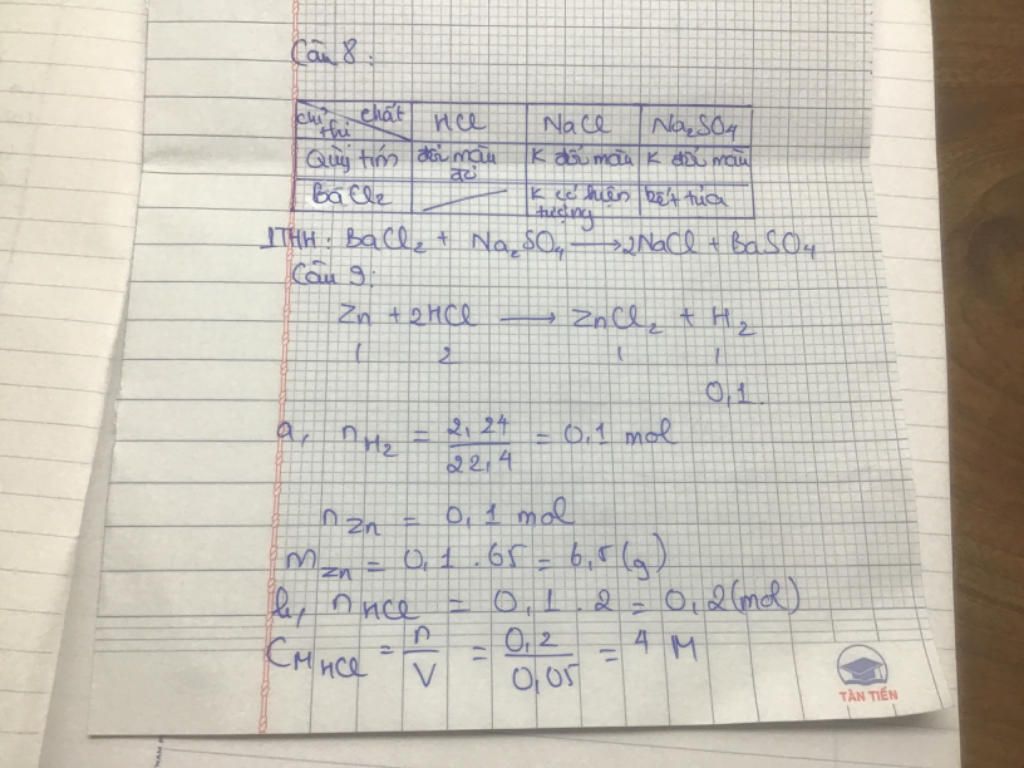 Câu 8:
chỉ thị chất HCl NaCl Na₂SO₄
Quỳ tím đổi màu đỏ K đổi màu K đổi màu
BaCl₂ K có hiện tượng kết tủa
PTHH: BaCl₂ + Na₂SO₄ → 2NaCl + BaSO₄
Câu 9:
Zn + 2HCl → ZnCl₂ + H₂
1 2 1 1
0,1
a, nH₂ = 2,24/22,4 = 0,1 mol
nZn = 0,1 mol
mZn = 0,1 . 65 = 6,5(g)
b, nHCl = 0,1 . 2 = 0,2(mol)
CM HCl = n/V = 0,2/0,05 = 4 M
TÂN TIẾN